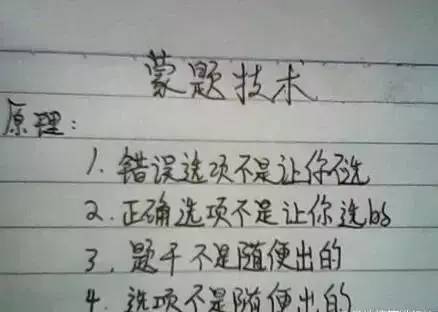 蒙题技术
原理：
1. 错误选项不是让你不选
2. 正确选项不是让你选的
3. 题干不是随便出的
4. 选项不是随便出的